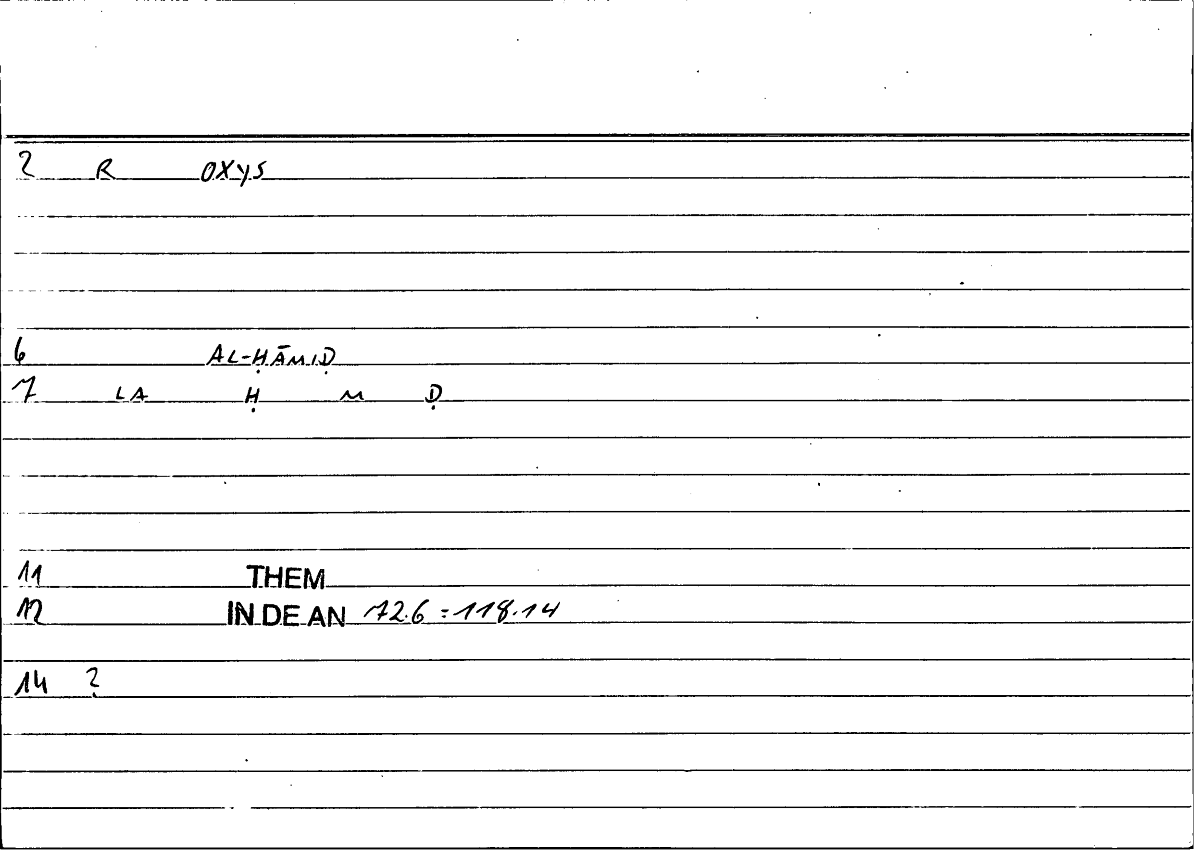 2 R OXYS
6 AL-ḤĀMIḌ
7 LA Ḥ M Ḍ
11 THEM
12 IN DE AN 72.6 = 118.14
14 ?